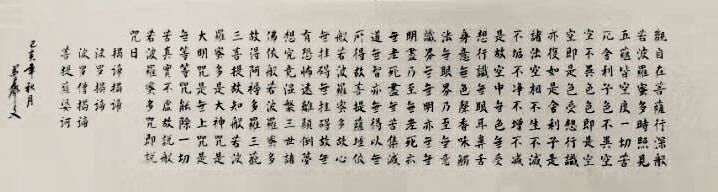 觀自在菩薩行深般
若波羅蜜多時照見
五蘊皆空度一切苦
厄舍利子色不異空
空不異色色即是空
空即是色受想行識
亦復如是舍利子是
諸法空相不生不滅
不垢不净不增不減
是故空中無色無受
想行識無眼耳鼻舌
身意無色聲香味觸
法無眼界乃至無意
識界無無明亦無無
明盡乃至無老死亦
無老死盡無苦集滅
道無智亦無得以無
所得故菩提薩埵依
般若波羅蜜多故心
無挂碍無挂碍故無
有恐怖遠離顛倒夢
想究竟涅槃三世諸
佛依般若波羅蜜多
故得阿耨多羅三藐
三菩提故知般若波
羅蜜多是大神咒是
大明咒是無上咒是
無等等咒能除一切
苦真實不虛故說般
若波羅蜜多咒即說
咒曰
揭諦揭諦
波羅揭諦
波羅僧揭諦
菩提薩婆訶
己亥年秋月